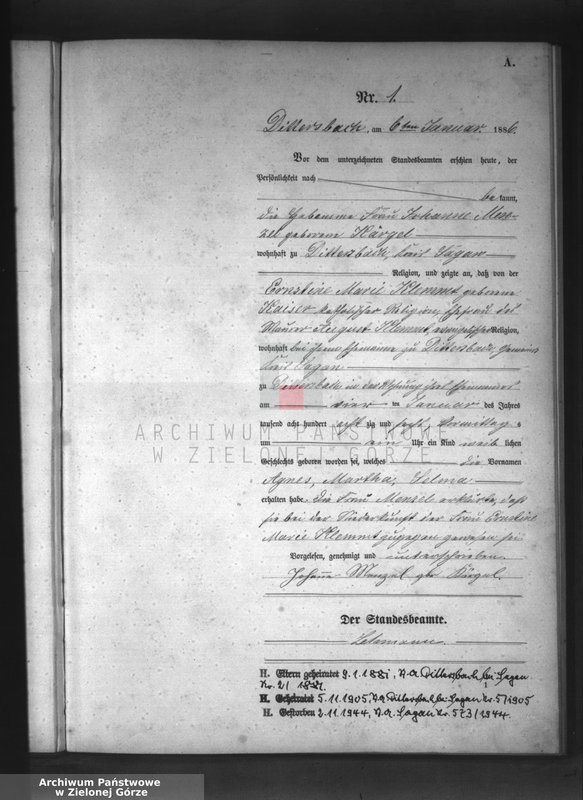 A.
Nr. 1.
Dittersbach, am 6ten Januar 1886.
Vor dem unterzeichneten Standesbeamten erschien heute, der
Persönlichkeit nach
be kannt,
die Hebamme Frau Johanne Men-
zel geborene Kärgel
wohnhaft zu Dittersbach, Kreis Sagan
Religion, und zeigte an, daß von der
Ernstine Marie Klemmt geborene
Kaiser katholischer Religion Ehefrau des
Maurer August Klemmt, evangelischer Religion,
wohnhaft bei ihrem Ehemanne zu Dittersbach,
Kreis Sagan
zu Dittersbach in der Wohnung ihres Ehemannes
am vier ten Januar des Jahres
tausend acht hundert acht zig und sechs Vormittags
um ein Uhr ein Kind weib lichen
Geschlechts geboren worden sei, welches die Vornamen
Agnes, Martha, Selma
erhalten habe. Die Frau Menzel erklärte, daß
sie bei der Niederkunft der Frau Ernstine
Marie Klemmt zugegen gewesen sei.
Vorgelesen, genehmigt und unterschrieben
Johanne Menzel geb Kärgel.
Der Standesbeamte.
H. Eltern geheiratet 9.1.1881, St.A. Dittersbach bei Sagan
Nr. 2/1881.
H. Geheiratet 5.11.1905 St.A. Dittersbach bei Sagan Nr. 5/1905
H. Gestorben 2.11.1944, St.A. Sagan Nr. 573/1944.
ARCHIWUM PAŃSTWOWE
W ZIELONEJ GÓRZE
Archiwum Państwowe
w Zielonej Górze